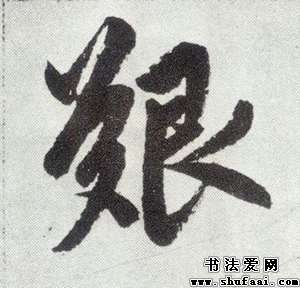 艰
书法爱网
www.shufaai.com